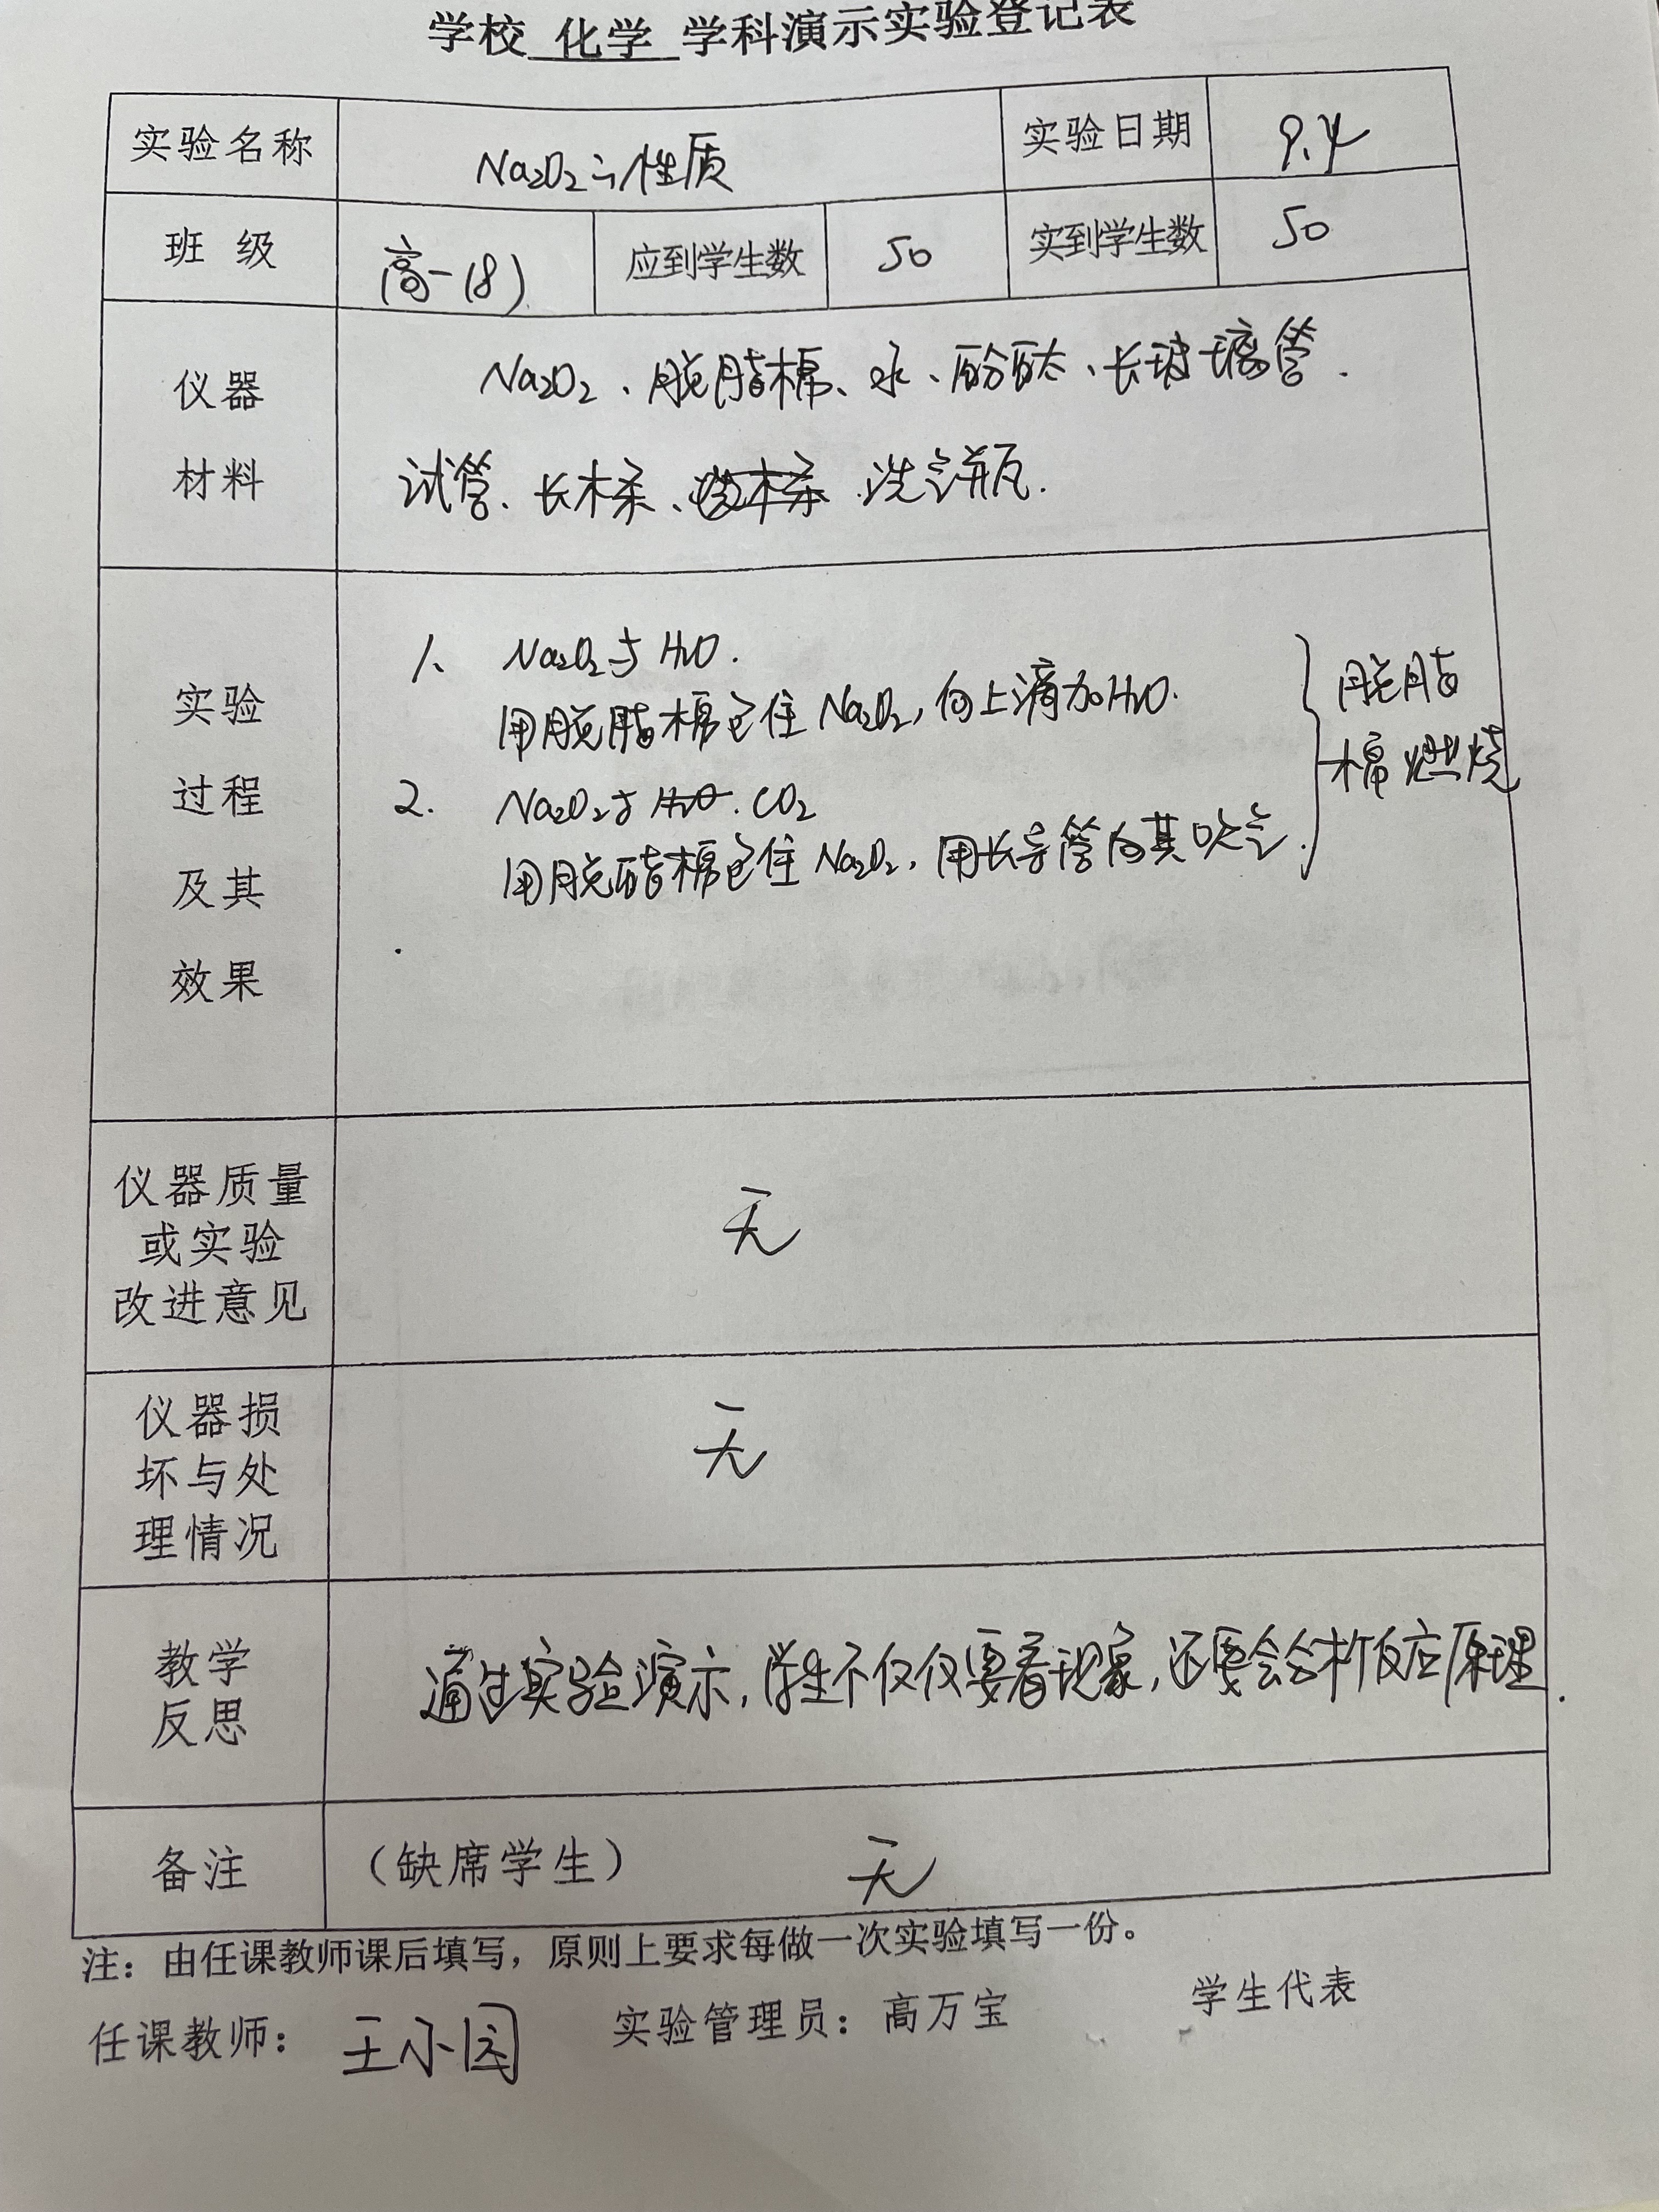 学校 化学 学科演示实验登记表
实验名称 Na₂O₂的性质 实验日期 9.4
班 级 高一(8) 应到学生数 50 实到学生数 50
仪器
材料
Na₂O₂、脱脂棉、水、酚酞、长玻璃管.
试管、长木条、洗气瓶.
实验
过程
及其
效果
1、 Na₂O₂与H₂O.
用脱脂棉包住Na₂O₂,向上滴加H₂O.
2. Na₂O₂与H₂O.CO₂
用脱酯棉包住Na₂O₂,用长导管向其吹气.
脱脂
棉燃烧
仪器质量
或实验
改进意见
无
仪器损
坏与处
理情况
无
教学
反思
通过实验演示,学生不仅仅要看现象,还要会分析反应原理.
备注 （缺席学生） 无
注：由任课教师课后填写，原则上要求每做一次实验填写一份。
任课教师： 王小园 实验管理员：高万宝 学生代表